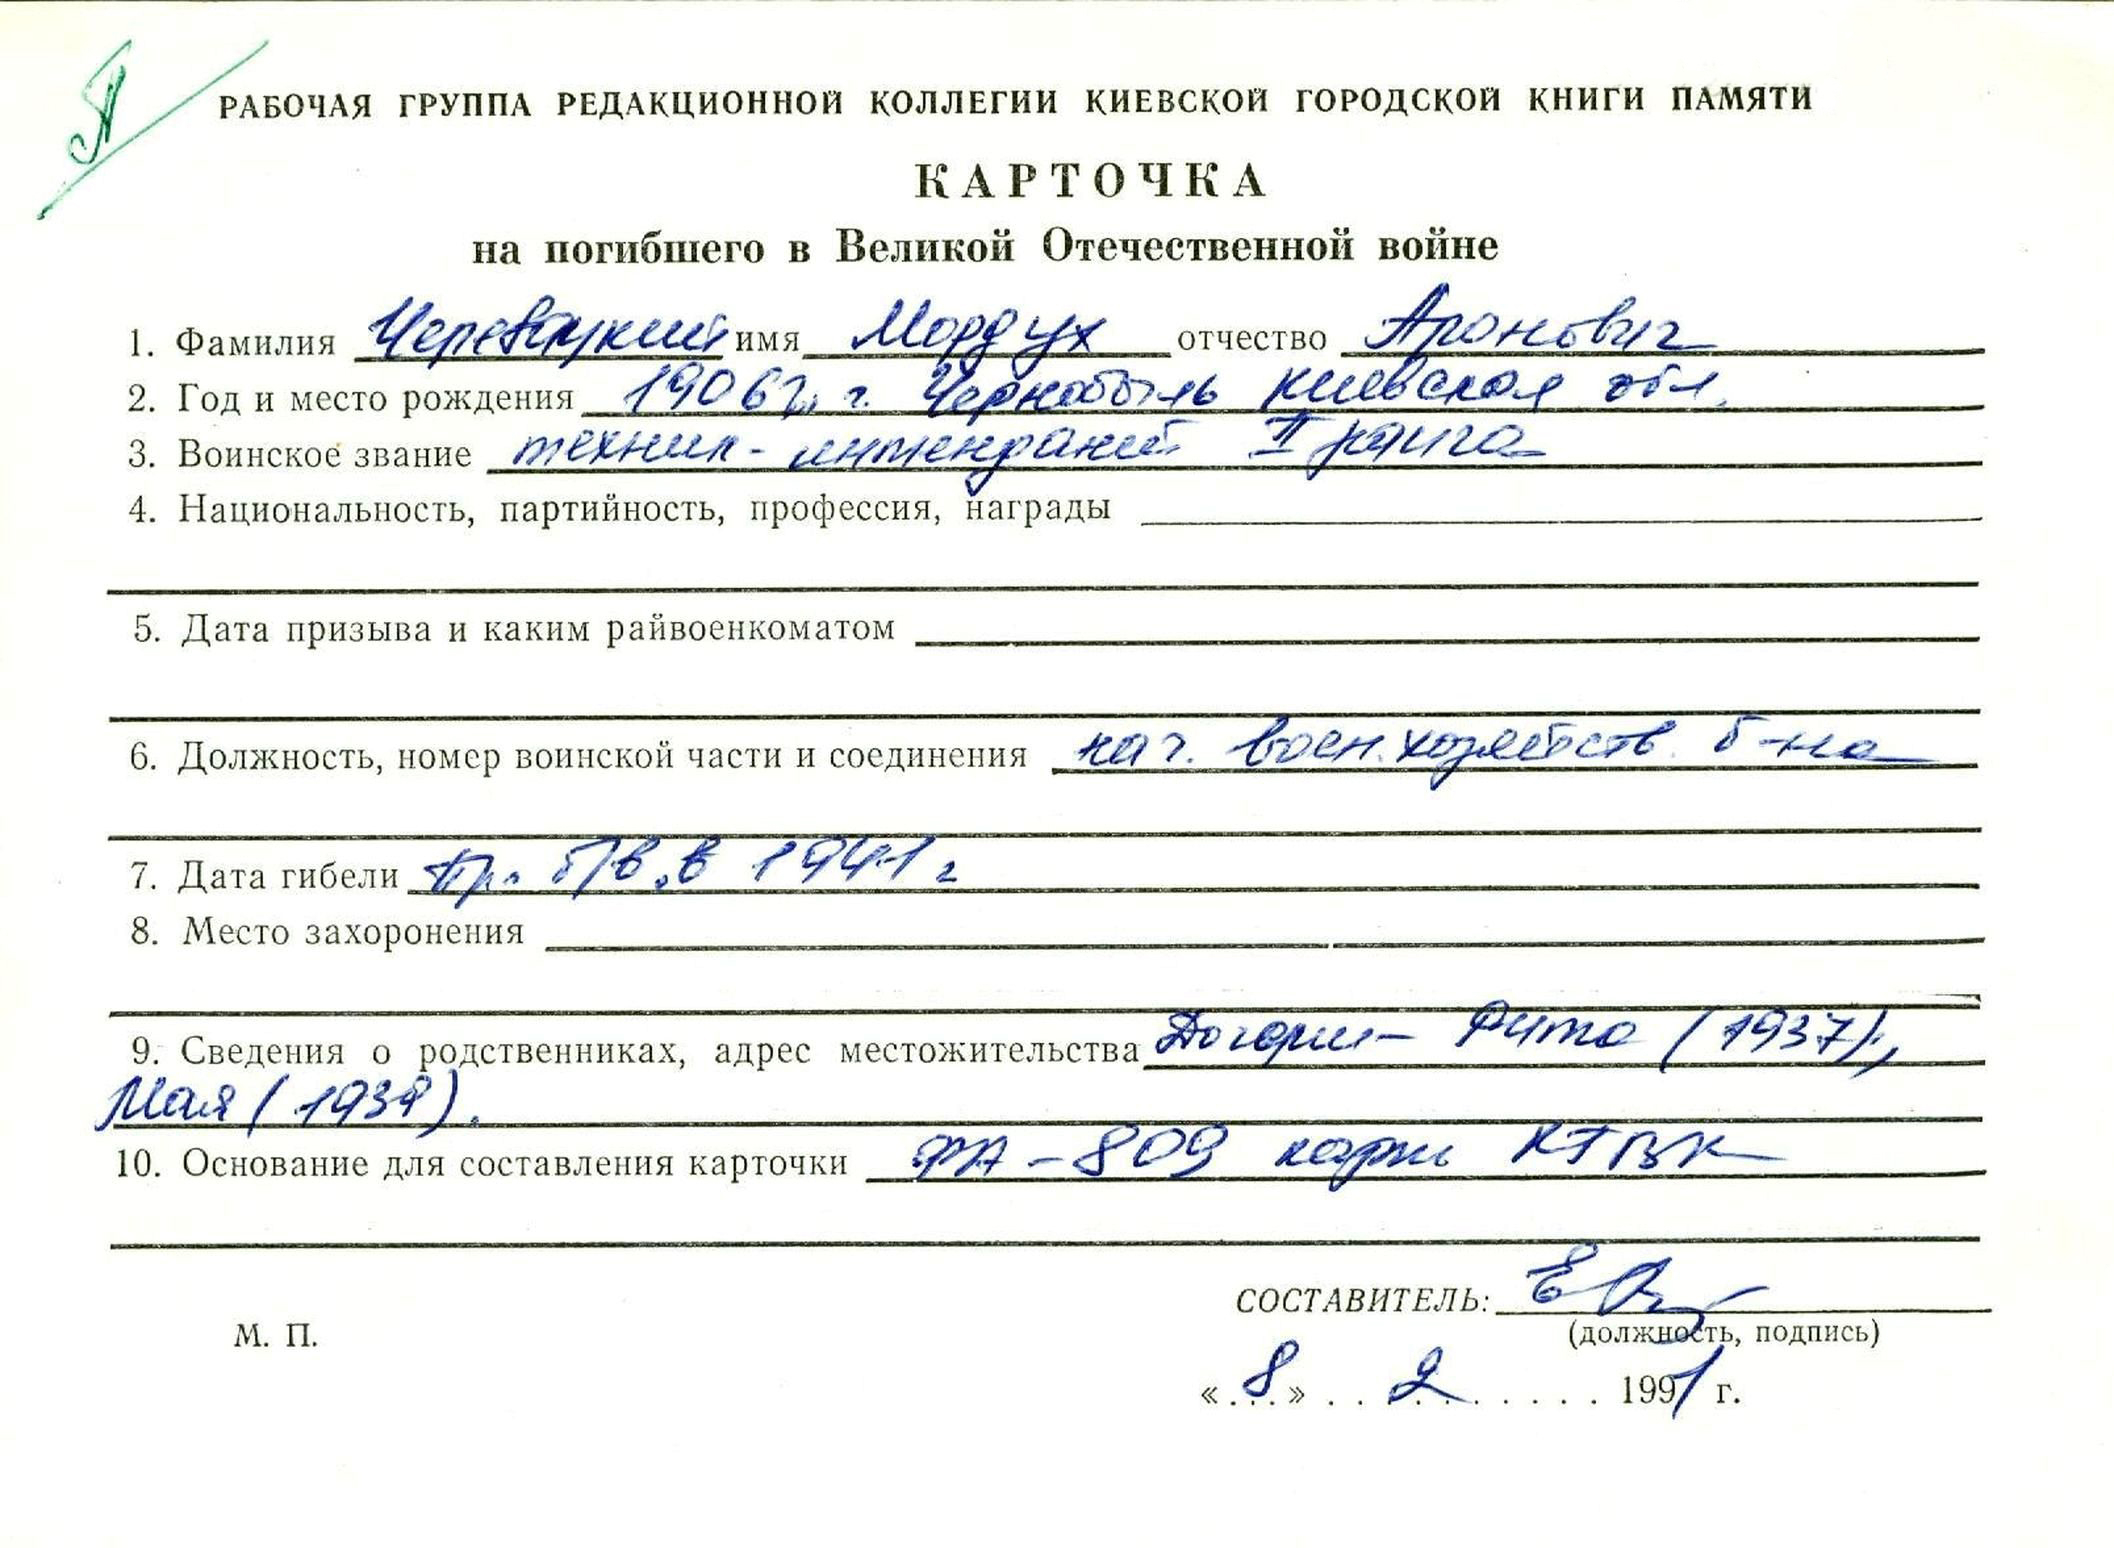 РАБОЧАЯ ГРУППА РЕДАКЦИОННОЙ КОЛЛЕГИИ КИЕВСКОЙ ГОРОДСКОЙ КНИГИ ПАМЯТИ
КАРТОЧКА
на погибшего в Великой Отечественной войне
1. Фамилия Черевацкий имя Мордух отчество Аронович
2. Год и место рождения 1906 г. г. Чернобыль Киевская обл.
3. Воинское звание техник-интендант II ранга
4. Национальность, партийность, профессия, награды
5. Дата призыва и каким райвоенкоматом
6. Должность, номер воинской части и соединения нач. воен. хозяйств. б-на
7. Дата гибели Пр. б/в. в 1941 г
8. Место захоронения
9. Сведения о родственниках, адрес местожительства Дочери - Рита (1937),
Мая (1939).
10. Основание для составления карточки ФА-809 карт КГВК
СОСТАВИТЕЛЬ:
М. П.
(должность, подпись)
«8» 2 1991 г.